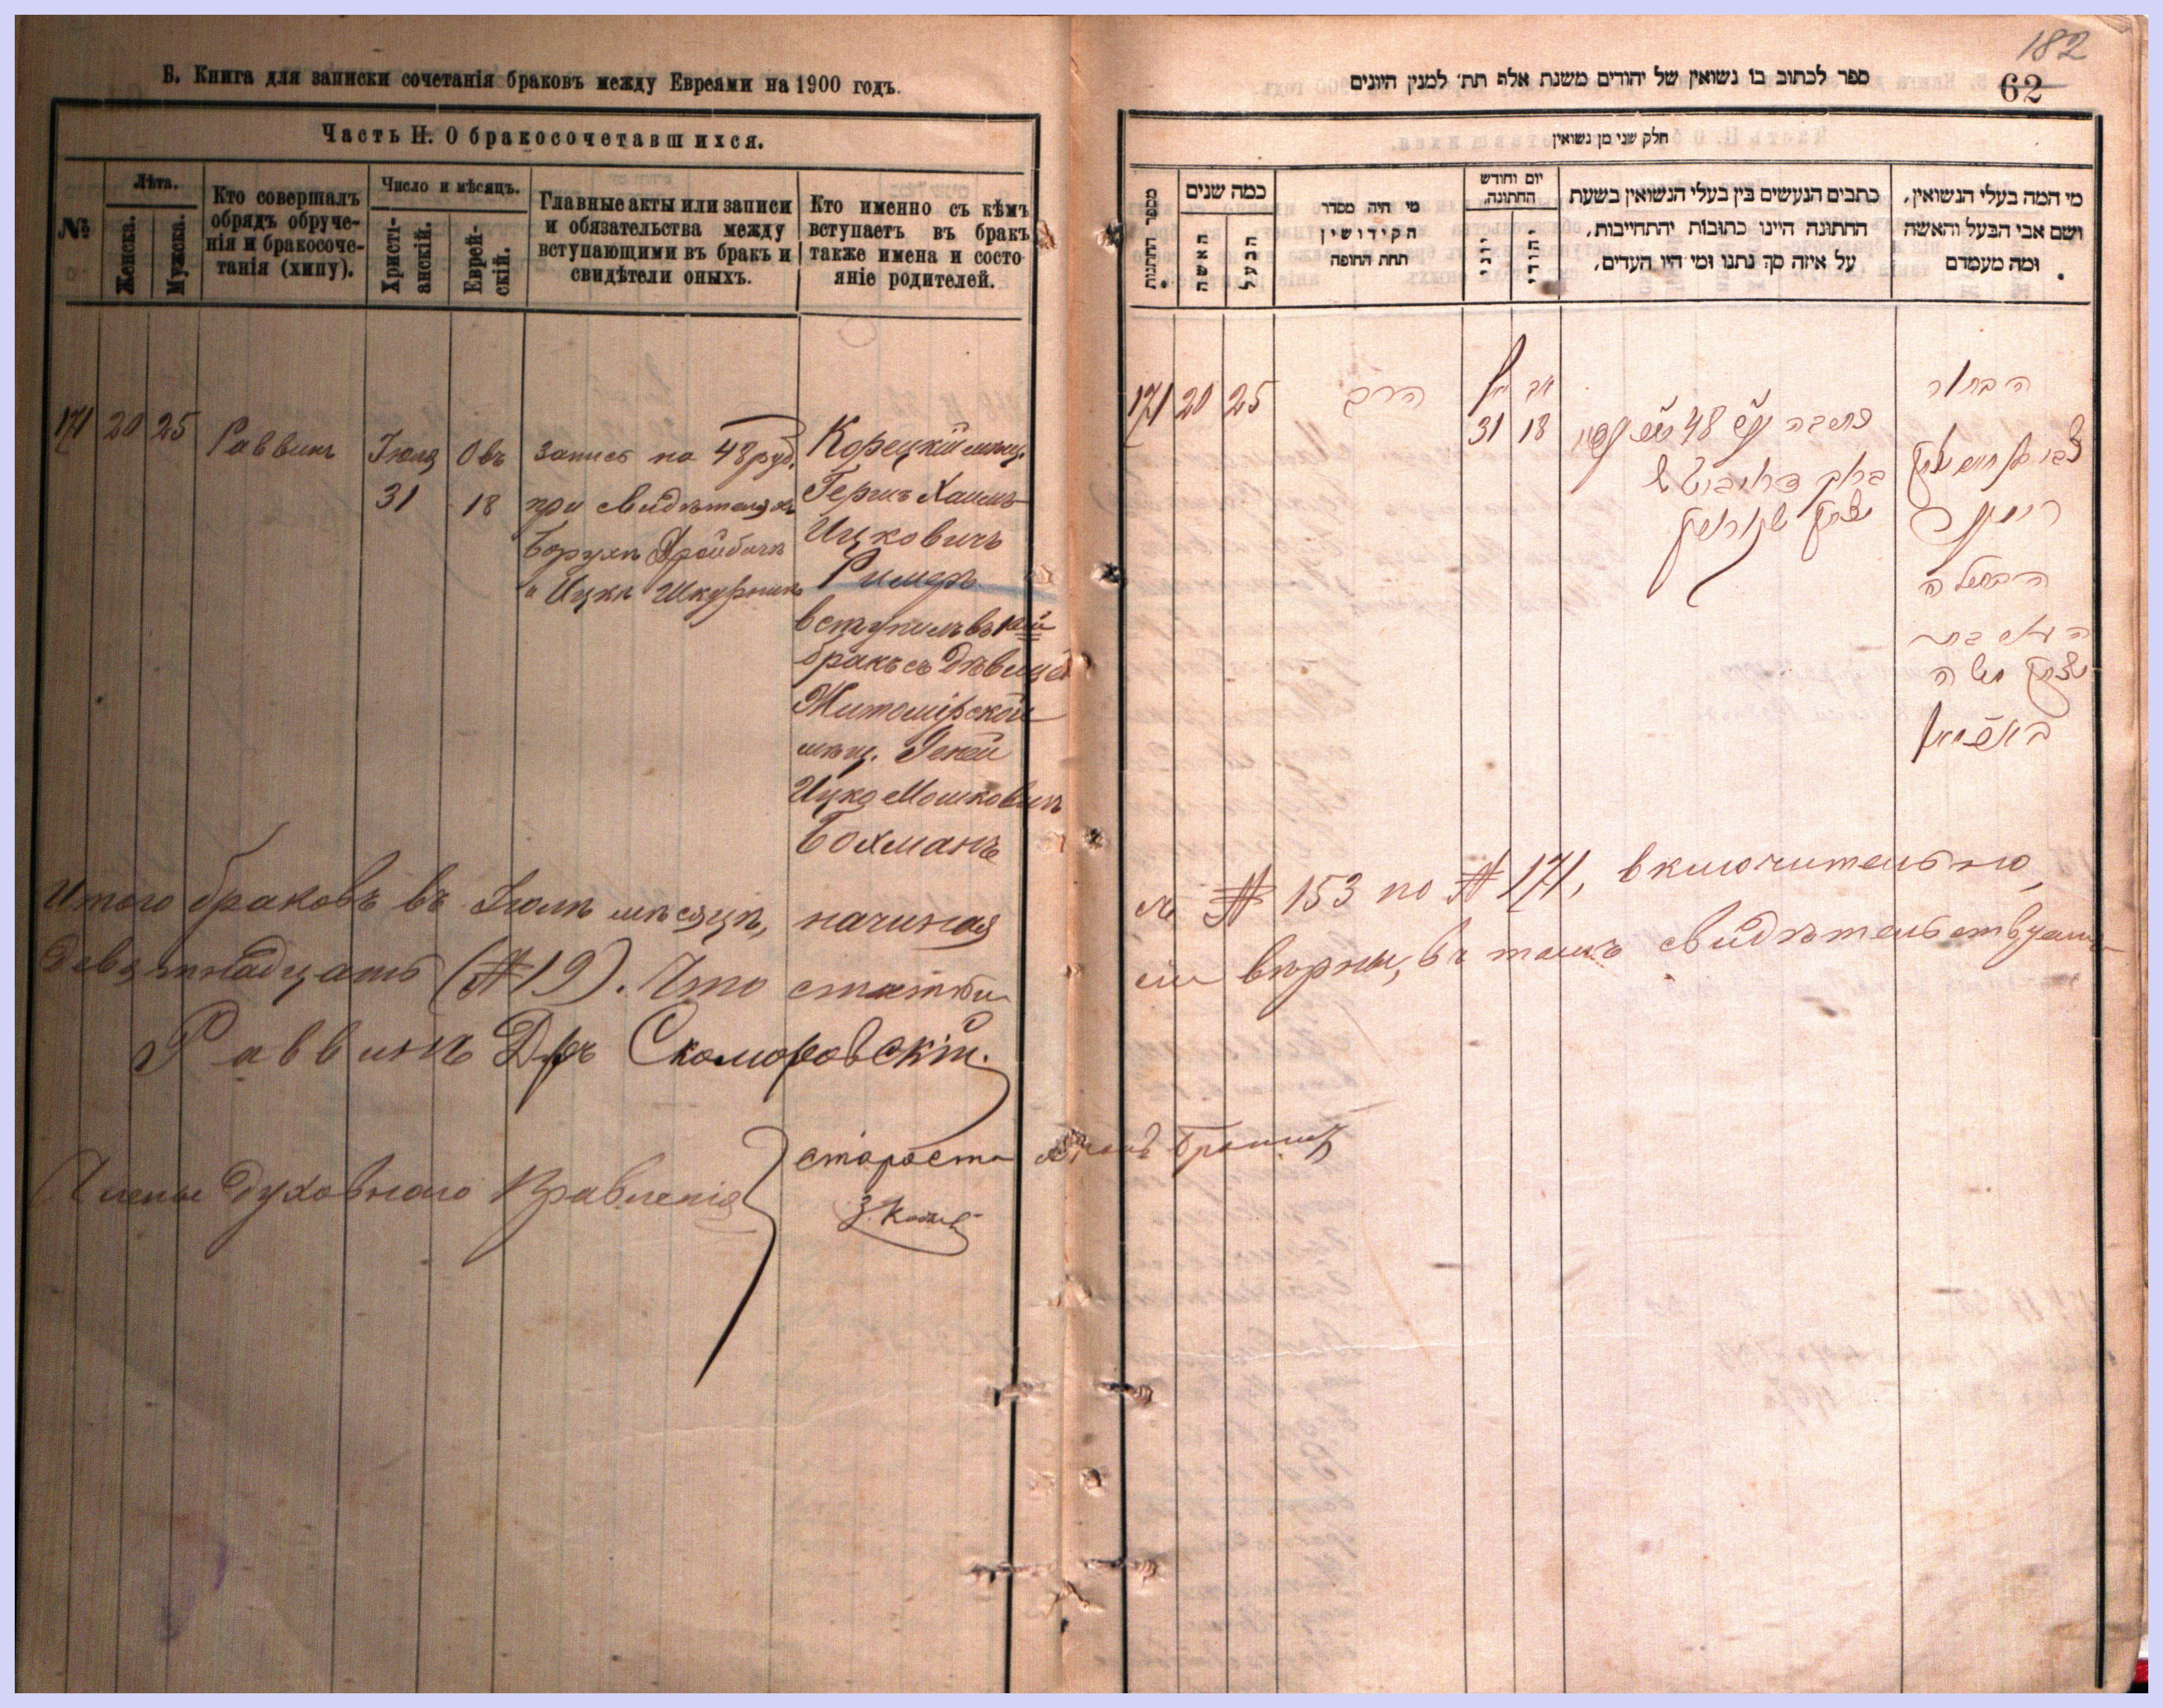 Б. Книга для записки сочетанія браковъ между Евреями на 1900 годъ.
Часть II. О бракосочетавшихся.
№
Лѣта.
Женска.
Мужска.
Кто совершалъ
обрядъ обруче-
нія и бракосоче-
танія (хипу).
Число и мѣсяцъ.
Христі-
анскій.
Еврей-
скій.
Главные акты или записи
и обязательства между
вступающими въ бракъ и
свидѣтели оныхъ.
Кто именно съ кѣмъ
вступаетъ въ бракъ
также имена и состо
яніе родителей.
171 20 25 Раввинъ
Іюля 31
Овъ 18
Запись на 48 руб.
при свидѣтеляхъ
Борухъ Дройбичъ
и Ицкъ Шкурникъ
Корецкій мѣщ.
Гершъ Хаимъ
Ицковичъ
Римеръ
вступилъ въ 1ый
бракъ съ дѣвицей
Житомірской
мѣщ. Геней
Ицко Мошковичъ
Бохманъ
Итого браковъ въ Іюлѣ мѣсяцѣ, начиная
девятнадцать (№ 19). Что статьи
Раввинъ Дръ Скоморовскій.
Члены Духовнаго Правленія
староста
182
62
ספר לכתוב בו נשואין של יהודים משנת אלף תת׳ למנין היונים
חלק שני מן נשואין
מספר החתונות
כמה שנים
האשה
הבעל
מי היה מסדר
הקידושין
תחת החופה
יום וחודש
החתונה.
יוני
יהודי
כתבים הנעשים בין בעלי הנשואין בשעת
החתונה היינו כתובות יהתחייבות,
על איזה סך נתנו ומי היו העדים,
מי המה בעלי הנשואין,
ושם אבי הבעל והאשה
ומה מעמדם
171 20 25 הרב
31
אב 18
כתובה 48
הבחור
הבתולה
съ № 153 по № 171, включительно,
сіи вѣрны, въ томъ свидѣтельствуемъ